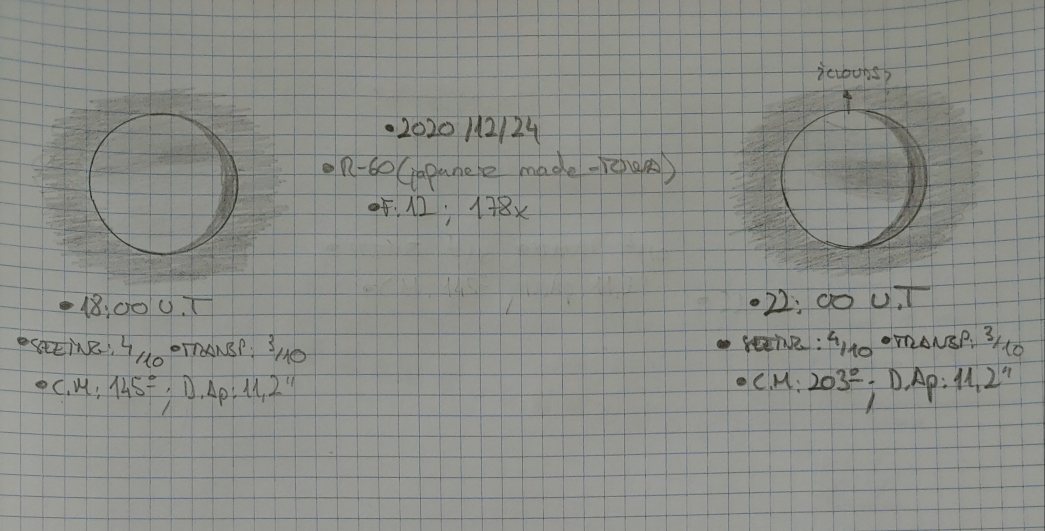 ¿CLOUDS?
•2020/12/24
•R-60 (japanese made -Towa)
•F:12; 178x
•18:00 U.T
•SEEING: 4/10 •TRANSP: 3/10
•C.M: 145º; D.Ap: 11,2"
•22:00 U.T
•SEEING: 4/10 •TRANSP: 3/10
•C.M: 203º; D.Ap: 11,2"